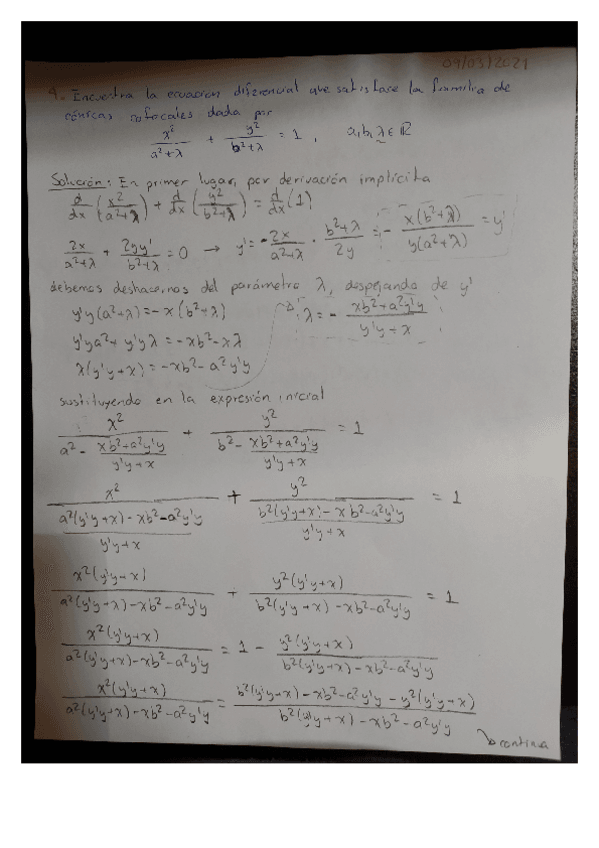 09/03/2021
4. Encuentra la ecuación diferencial que satisface la familia de
cónicas cofocales dada por
x²/(a²+λ) + y²/(b²+λ) = 1, a,b,λ ∈ ℝ
Solución: En primer lugar, por derivación implícita
d/dx (x²/(a²+λ)) + d/dx (y²/(b²+λ)) = d/dx (1)
2x/(a²+λ) + 2yy'/(b²+λ) = 0 → y' = -2x/(a²+λ) · (b²+λ)/2y = - x(b²+λ)/(y(a²+λ)) = y'
debemos deshacernos del parámetro λ, despejando de y'
y'y(a²+λ) = -x(b²+λ)
λ = - (xb²+a²y'y)/(y'y+x)
y'ya² + y'yλ = -xb² - xλ
λ(y'y+x) = -xb² - a²y'y
sustituyendo en la expresión inicial
x²/(a² - (xb²+a²y'y)/(y'y+x)) + y²/(b² - (xb²+a²y'y)/(y'y+x)) = 1
x²/((a²(y'y+x) - xb² - a²y'y)/(y'y+x)) + y²/((b²(y'y+x) - xb² - a²y'y)/(y'y+x)) = 1
x²(y'y+x)/(a²(y'y+x) - xb² - a²y'y) + y²(y'y+x)/(b²(y'y+x) - xb² - a²y'y) = 1
x²(y'y+x)/(a²(y'y+x) - xb² - a²y'y) = 1 - y²(y'y+x)/(b²(y'y+x) - xb² - a²y'y)
x²(y'y+x)/(a²(y'y+x) - xb² - a²y'y) = (b²(y'y+x) - xb² - a²y'y - y²(y'y+x))/(b²(y'y+x) - xb² - a²y'y)
continua